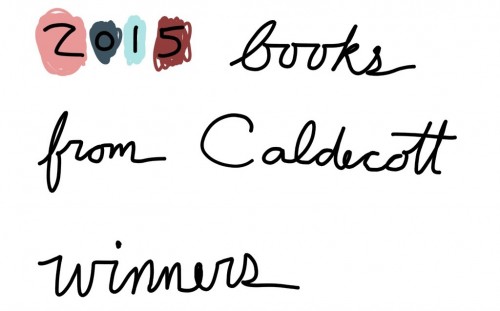 2015 books
from Caldecott
winners